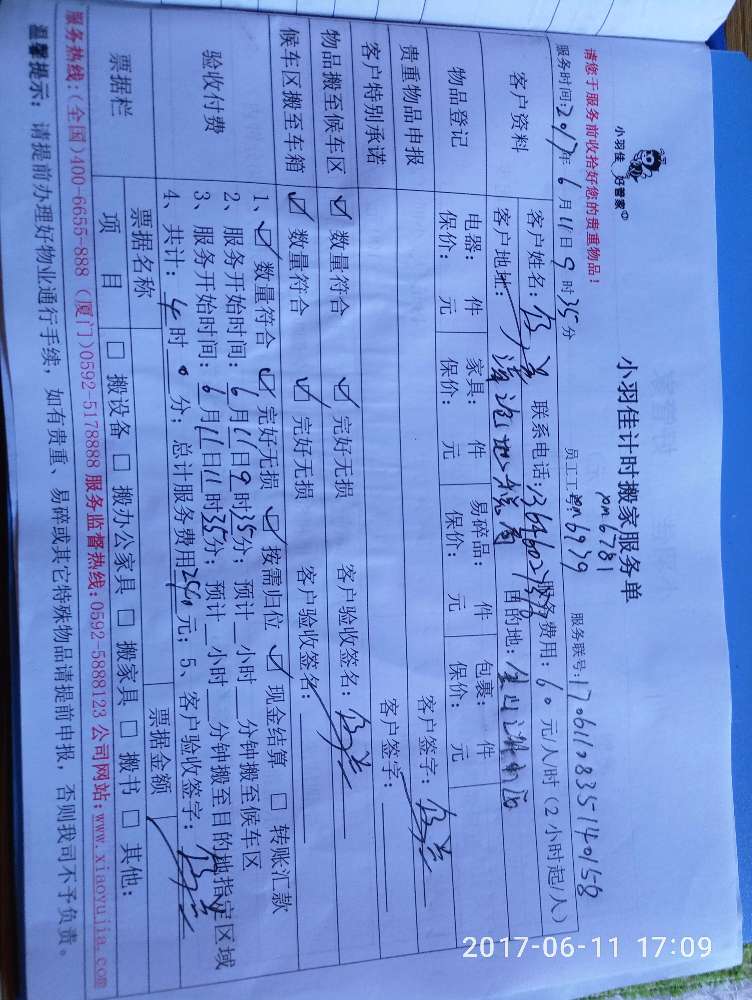 小羽佳 好管家
小羽佳计时搬家服务单
请您于服务前收拾好您的贵重物品！
xm6781
服务时间：2017年6月11日9时35分 员工工号：xm6939 服务联号：1706110835140158
客户资料
客户姓名： 联系电话： 服务费用：60元/人/时（2小时起/人）
客户地址： 目的地：
物品登记
电器： 件 家具： 件 易碎品： 件 包裹： 件
保价： 元 保价： 元 保价： 元 保价： 元
贵重物品申报 客户签字：
客户特别承诺 客户签字：
物品搬至候车区 ☑ 数量符合 ☑ 完好无损 客户验收签名：
候车区搬至车箱 ☑ 数量符合 ☑ 完好无损 客户验收签名：
验收付费
1、☑ 数量符合 ☑ 完好无损 ☑ 按需归位 ☑ 现金结算 □ 转账汇款
2、服务开始时间：6月11日9时35分；预计 小时 分钟搬至候车区
3、服务开始时间：6月11日11时35分；预计 小时 分钟搬至目的地指定区域
4、共计：4时0分；总计服务费用240元；5、客户验收签字：
票据栏
票据名称 票据金额
项 目 □ 搬设备 □ 搬办公家具 □ 搬家具 □ 搬书 □ 其他：
服务热线：(全国)400-6655-888 (厦门)0592-5178888 服务监督热线:0592-5888123 公司网站:www.xiaoyujia.com
温馨提示：请提前办理好物业通行手续，如有贵重、易碎或其它特殊物品请提前申报，否则我司不予负责。
2017-06-11 17:09